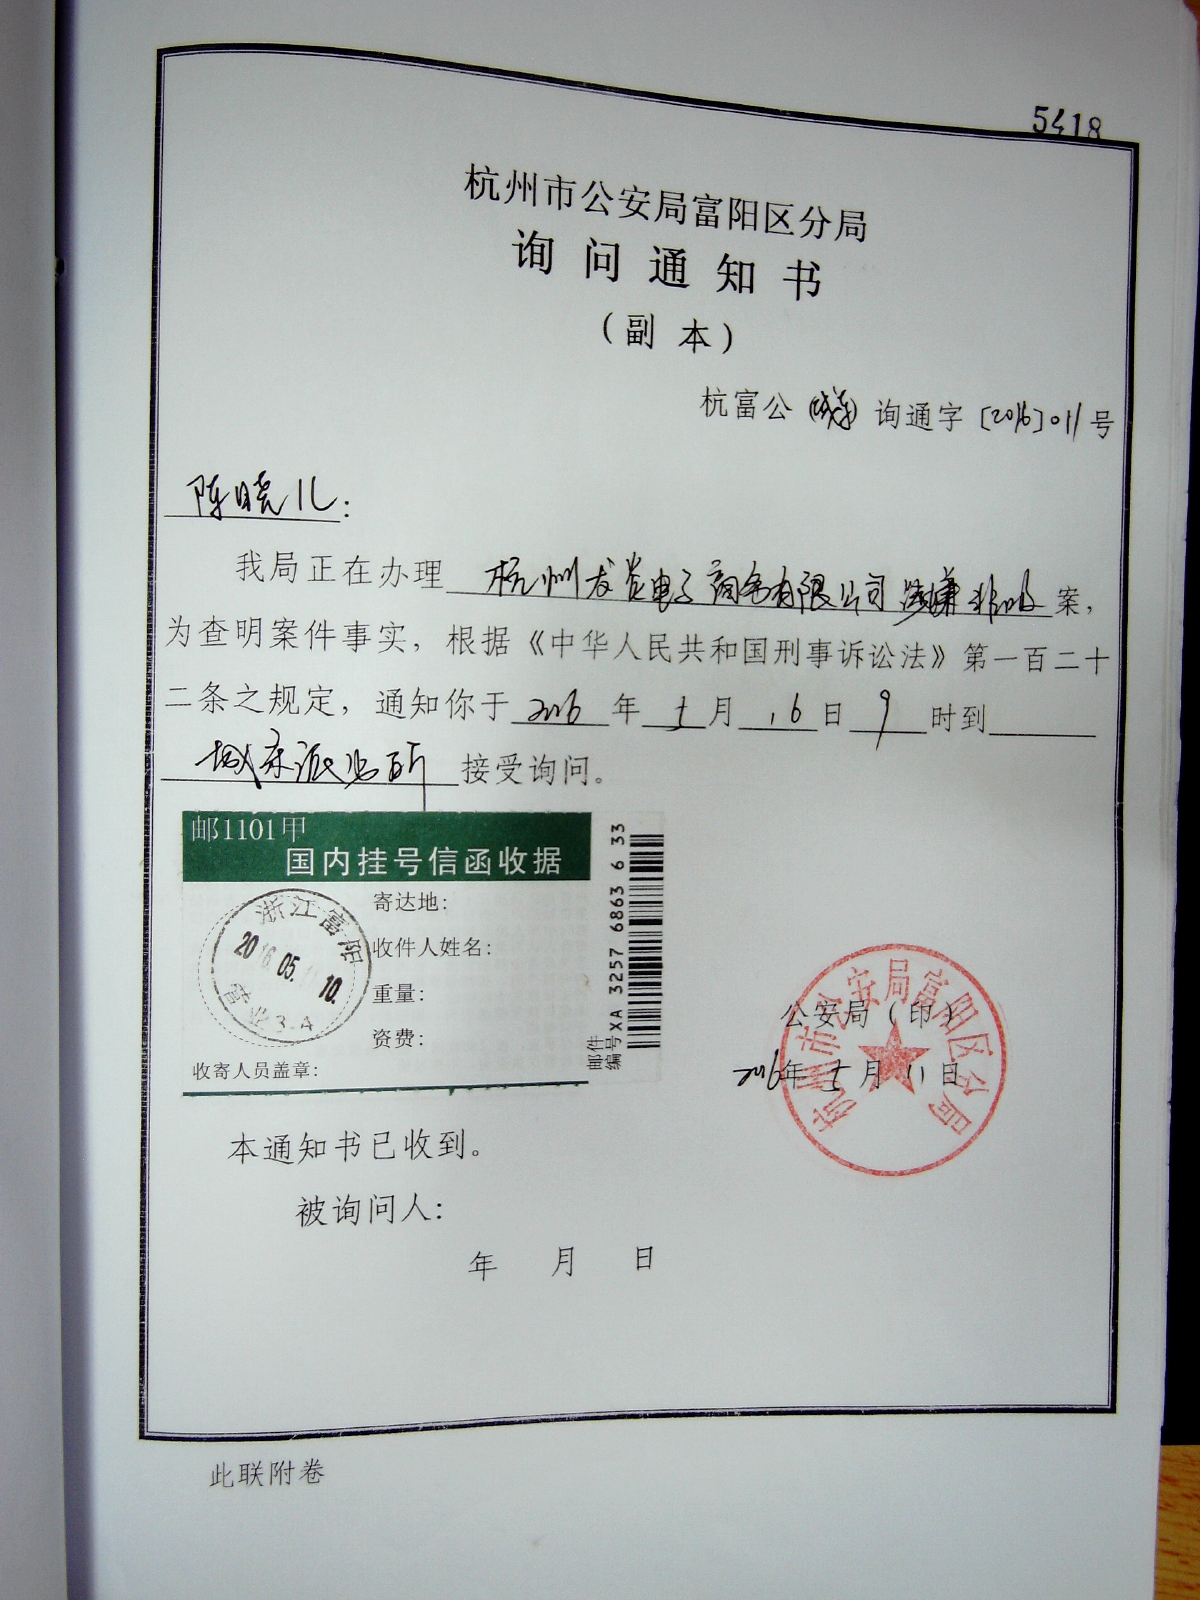 5418
杭州市公安局富阳区分局
询问通知书
(副本)
杭富公 询通字〔2016〕011号
陈晓儿:
我局正在办理 杭州 电子商务有限公司涉嫌非吸 案,
为查明案件事实, 根据《中华人民共和国刑事诉讼法》第一百二十
二条之规定, 通知你于 2016 年 5 月 16 日 9 时到
城东派出所 接受询问。
邮1101甲
国内挂号信函收据
寄达地:
收件人姓名:
重量:
资费:
收寄人员盖章:
浙江富阳
2016.05.11 10.
营业3-4
邮件
编号XA 3257 6863 6 33
公安局(印)
2016年 5 月 11 日
杭州市公安局富阳区分局
本通知书已收到。
被询问人:
年 月 日
此联附卷